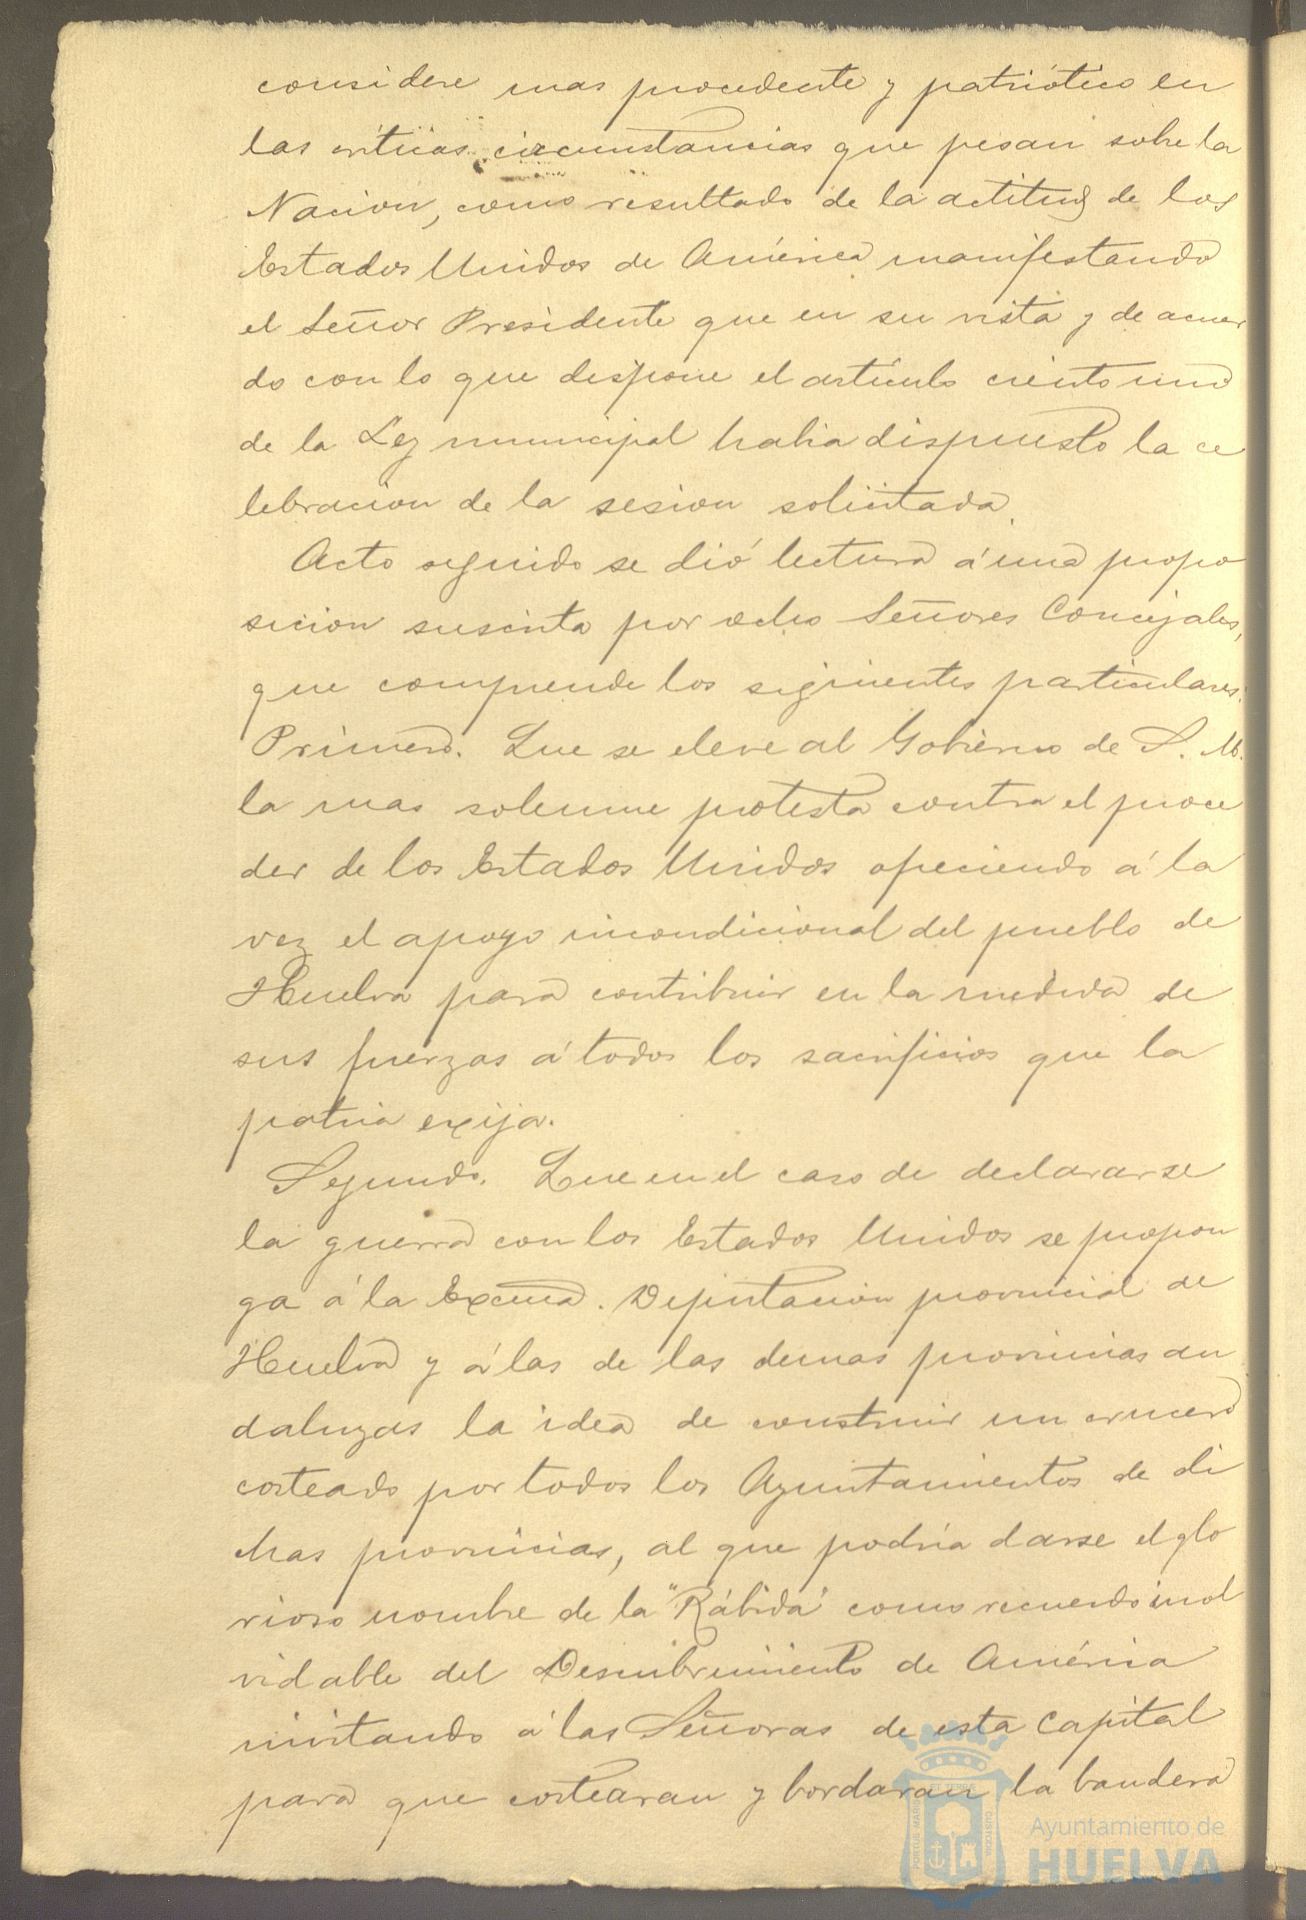 considere mas procedente y patriótico en
las críticas circunstancias que pesan sobre la
Nacion, como resultado de la actitud de los
Estados Unidos de América manifestando
el Señor Presidente que en su vista y de acuer
do con lo que dispone el artículo ciento uno
de la Ley municipal habia dispuesto la ce
lebracion de la sesion solicitada.
Acto seguido se dió lectura á una propo
sicion suscrita por ocho Señores Concejales,
que comprende los siguientes particulares:
Primero. Que se eleve al Gobierno de S. M.
la mas solemne protesta contra el proce
der de los Estados Unidos ofreciendo á la
vez el apoyo incondicional del pueblo de
Huelva para contribuir en la medida de
sus fuerzas á todos los sacrificios que la
patria exija.
Segundo. Que en el caso de declararse
la guerra con los Estados Unidos se propon
ga á la Excma. Diputacion provincial de
Huelva y á las de las demas provincias an
daluzas la idea de construir un crucero
costeado por todos los Ayuntamientos de di
chas provincias, al que podría darse el glo
rioso nombre de la "Rábida" como recuerdo inol
vidable del Descubrimiento de América
invitando á las Señoras de esta Capital
para que costearan y bordaran la bandera
Ayuntamiento de
HUELVA